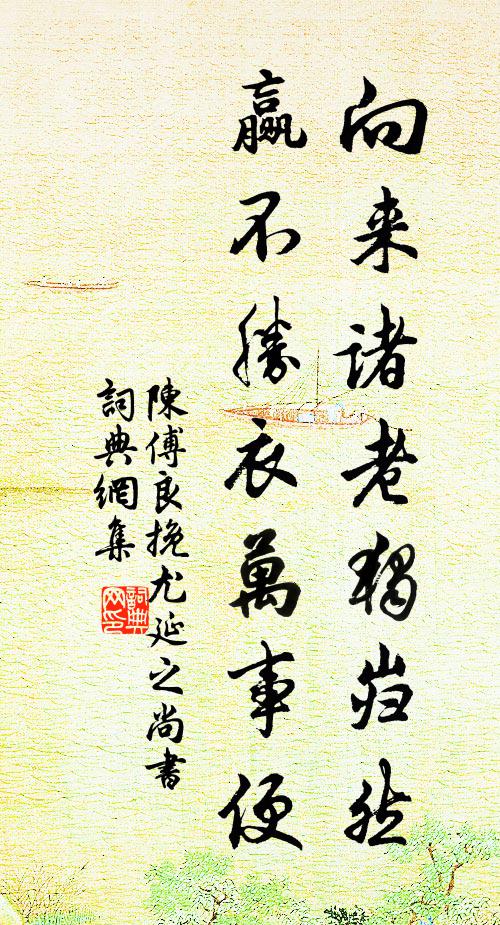 向来諸老獨岿然
羸不勝衣萬事便
陳傅良挽尤延之尚書
詞典網集
詞典
网印